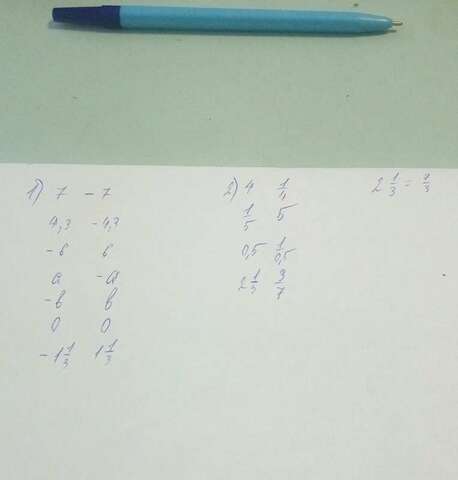 1) 7 - 7
4,3 -4,3
-6 6
a -a
-b b
0 0
-1 1/3 1 1/3
2) 4 1/4
1/5 5
0,5 1/0,5
2 1/3 3/7
2 1/3 = 7/3